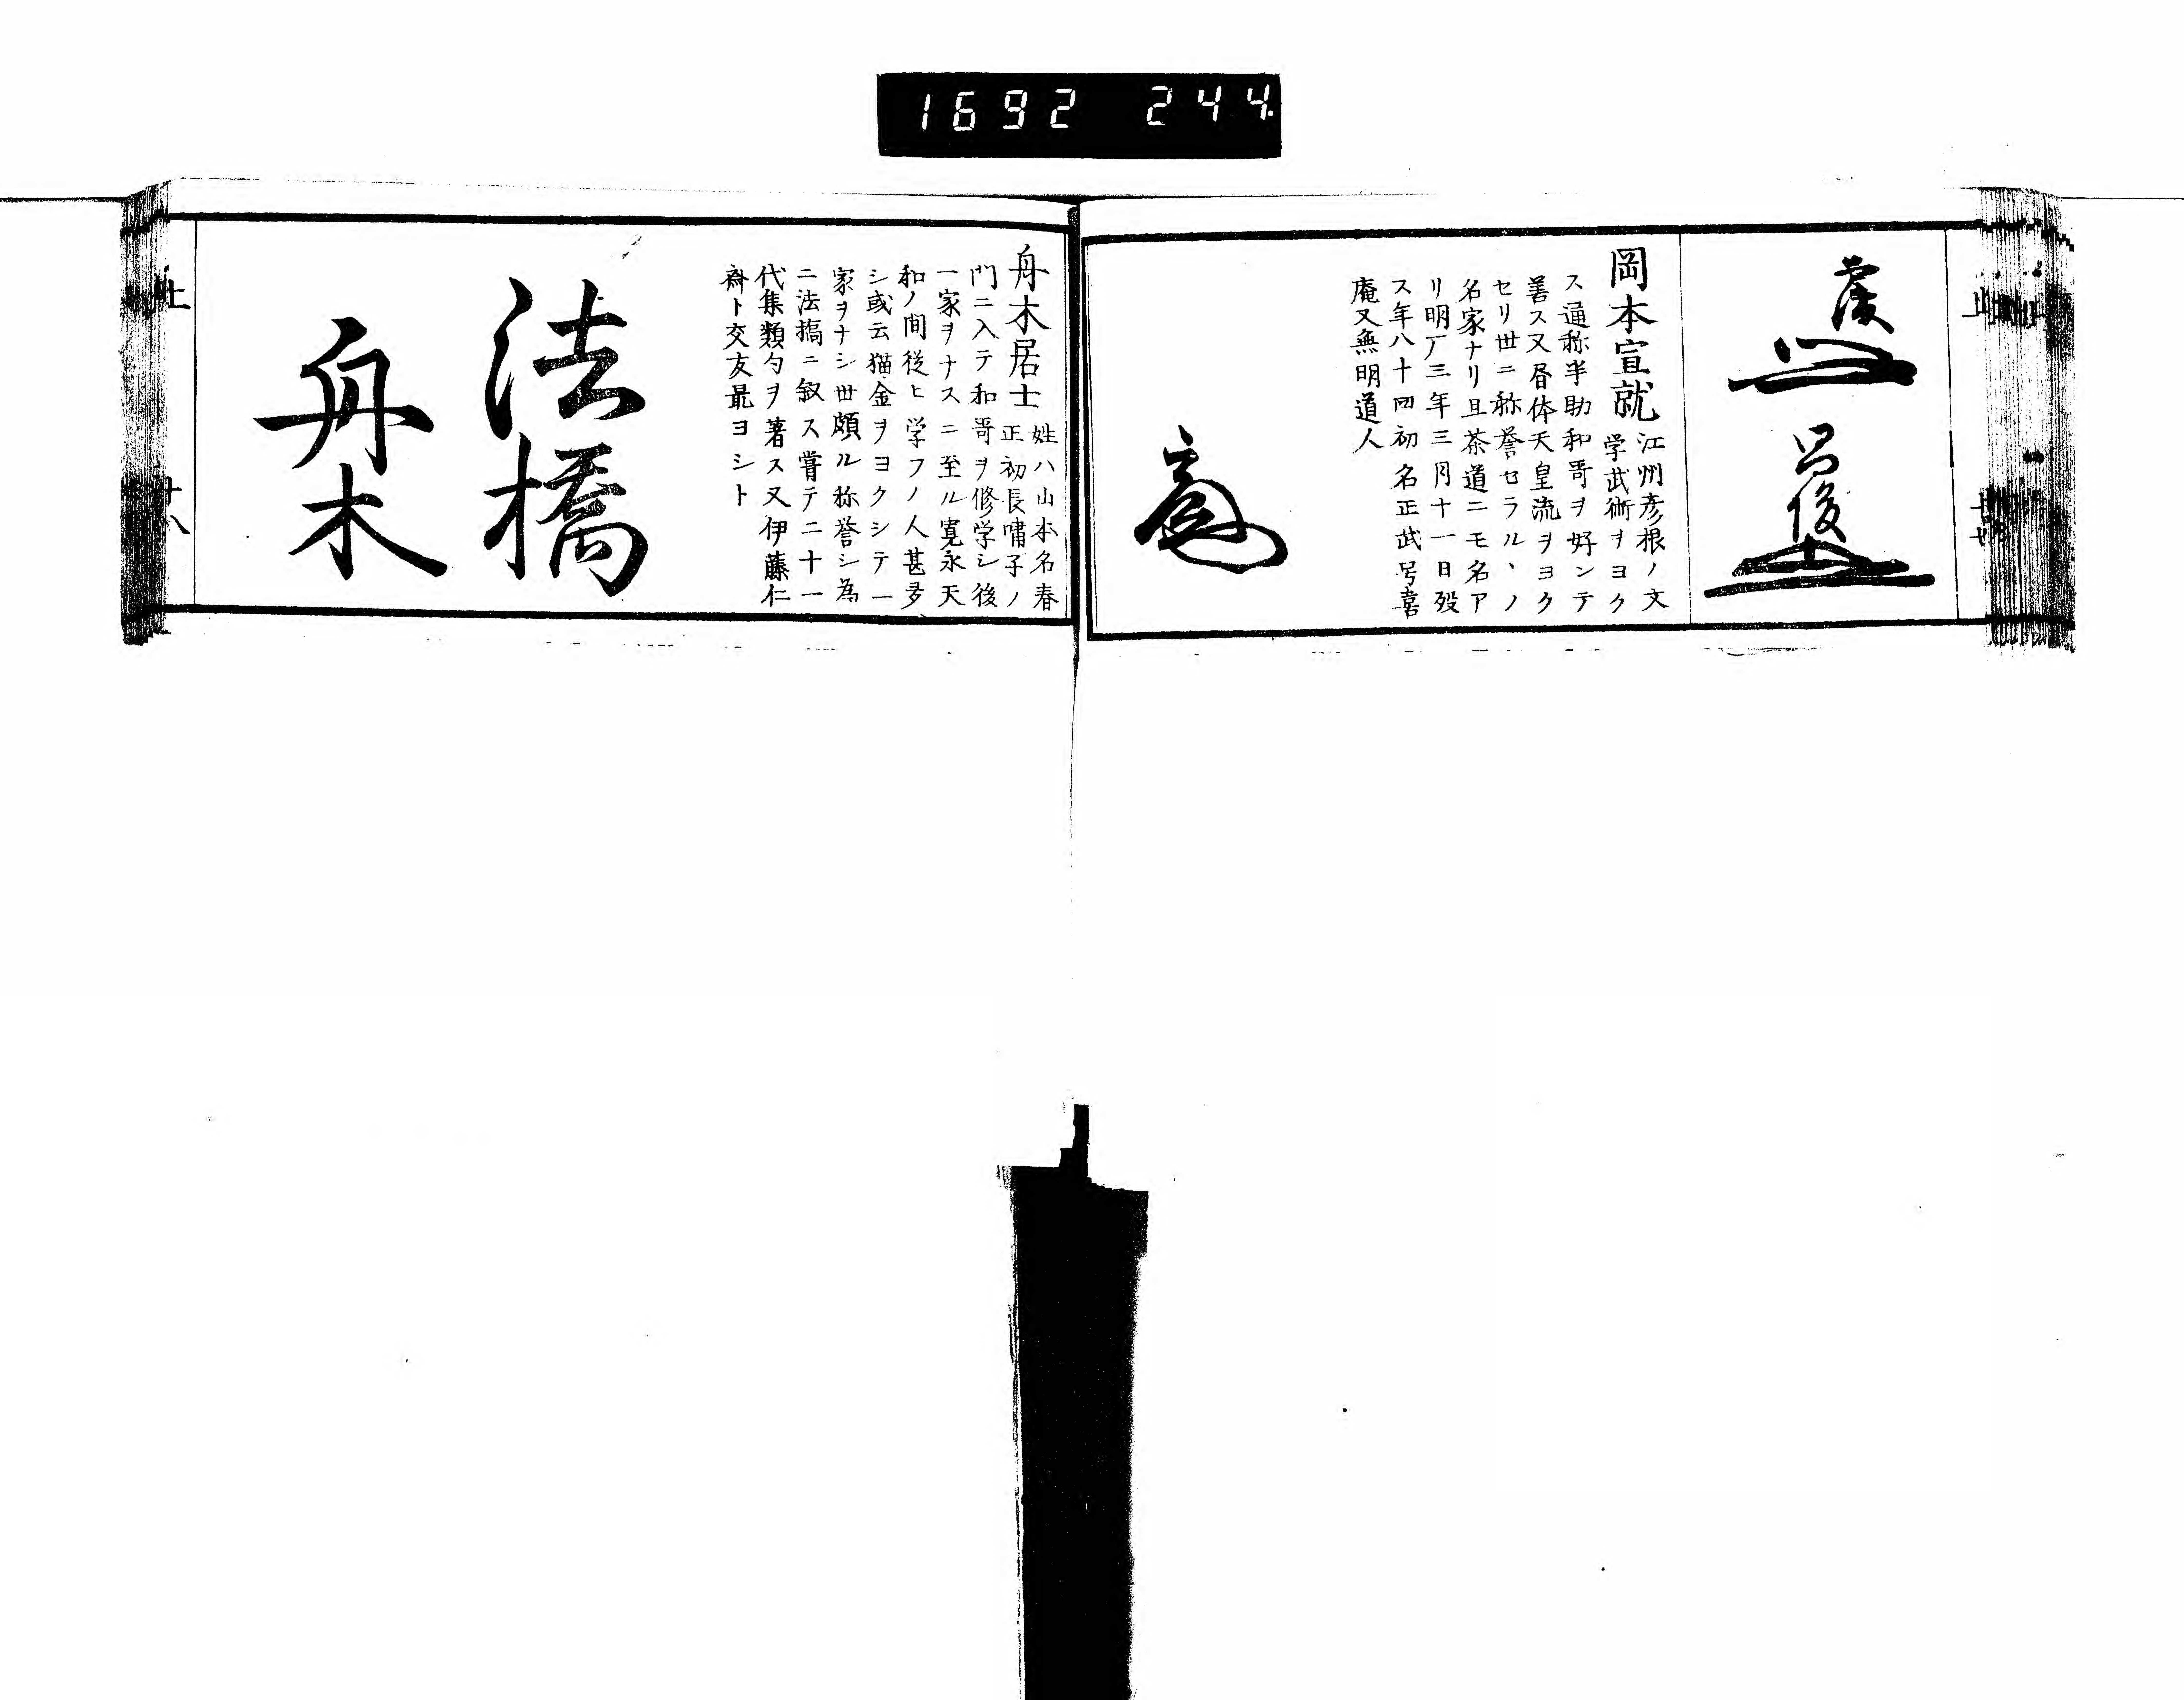 1692 244.
岡本宣就
江州彦根ノ文
学武術ヲヨク
ス通称半助和哥ヲ好ンテ
善ス又唇体天皇流ヲヨク
セリ世ニ称誉セラル丶ノ
名家ナリ且茶道ニモ名ア
リ明厂三年三月十一日歿
ス年八十四初名正武号喜
庵又無明道人
舟木居士
姓ハ山本名春
正初長嘯子ノ
門ニ入テ和哥ヲ修学シ後
一家ヲナスニ至ル寛永天
和ノ間従ヒ学フノ人甚多
シ或云猫金ヲヨクシテ一
家ヲナシ世頗ル称誉シ為
ニ法搞ニ叙ス嘗テ二十一
代集類句ヲ著ス又伊藤仁
斎ト交友最ヨシト
法橋
舟木
上
十八